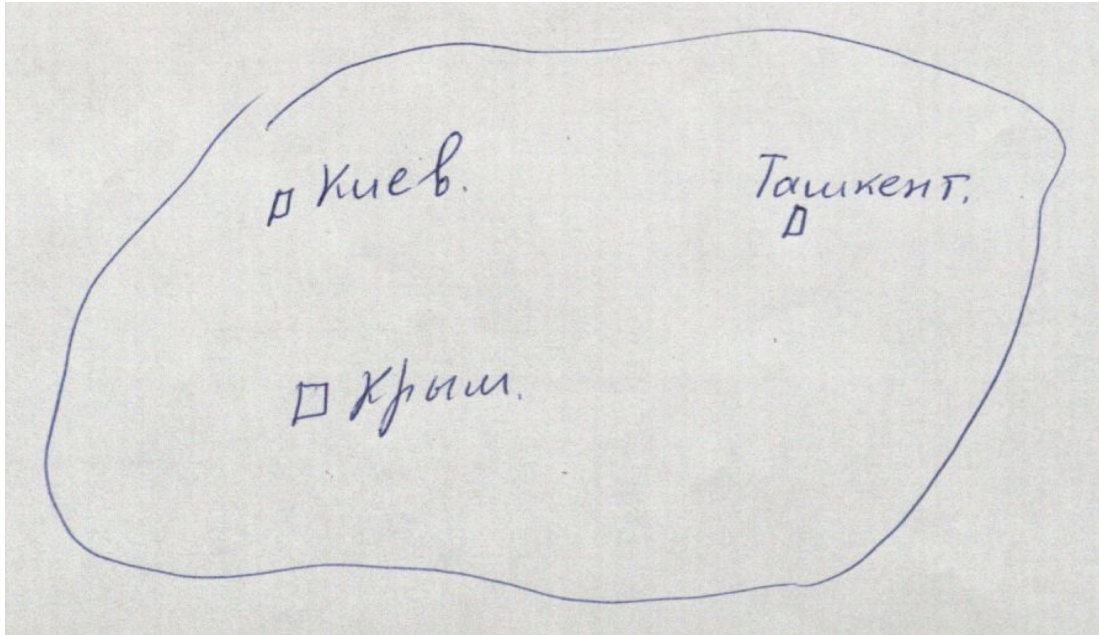 Киев.
Ташкент.
Крым.